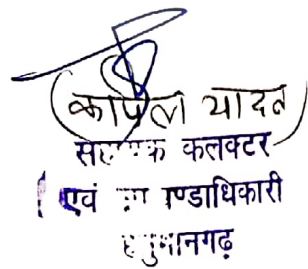 (कपिल यादव)
सहायक कलक्टर
एवं दण्डाधिकारी
हनुमानगढ़